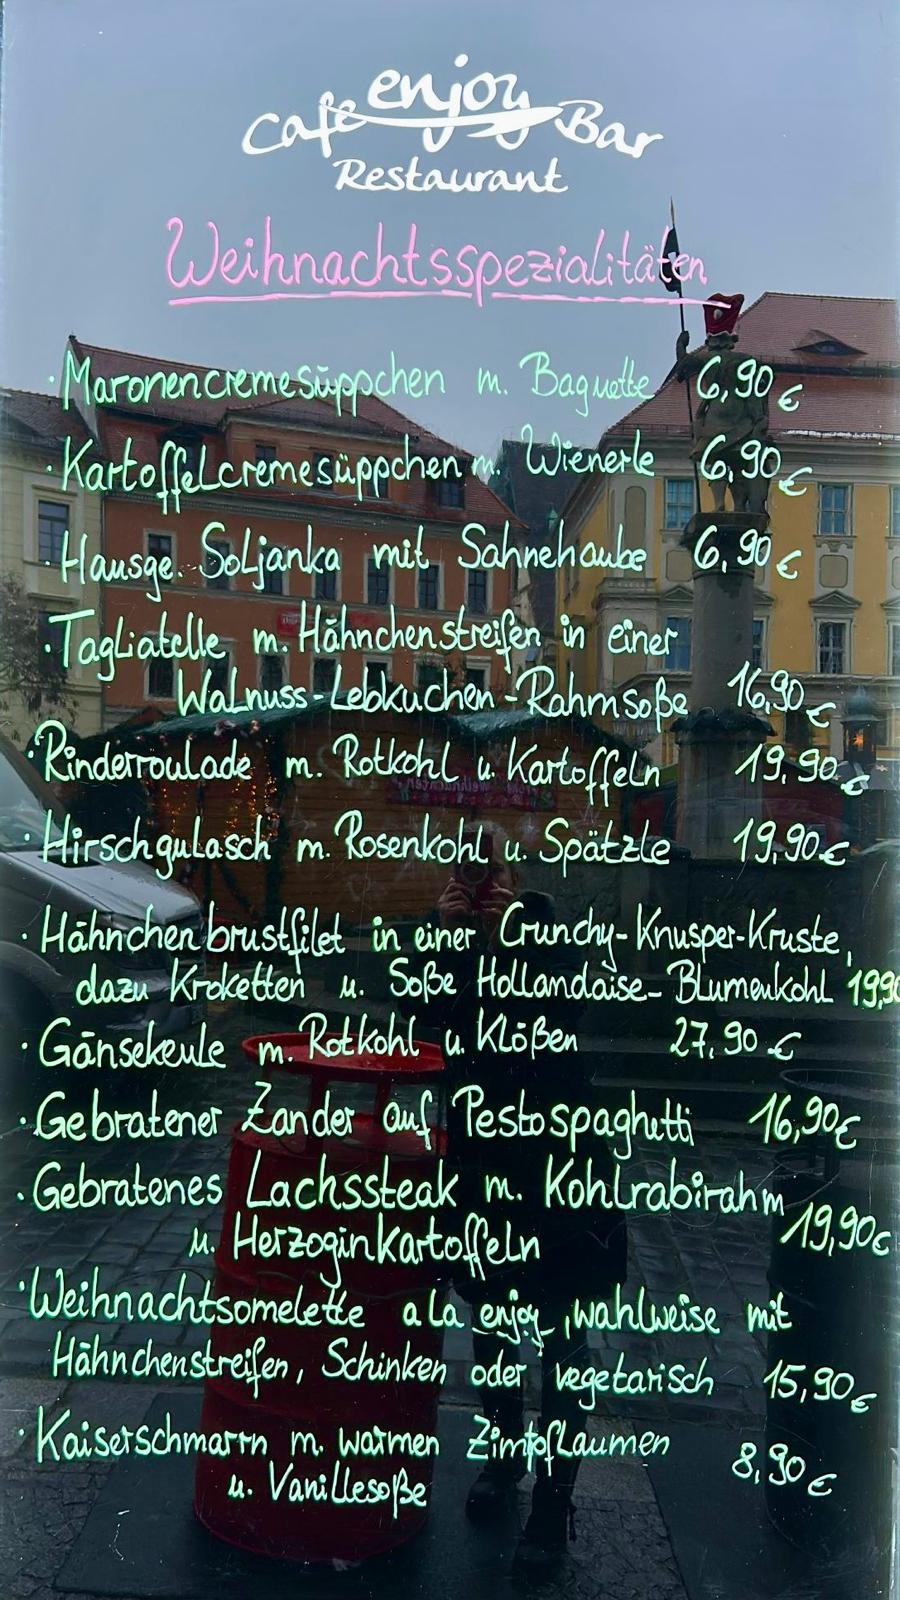 enjoy
Cafe Bar
Restaurant
Weihnachtsspezialitäten
· Maronencremesüppchen m. Baguette 6,90 €
· Kartoffelcremesüppchen m. Wienerle 6,90 €
· Hausge. Soljanka mit Sahnehaube 6,90 €
· Tagliatelle m. Hähnchenstreifen in einer
Walnuss-Lebkuchen-Rahmsoße 16,90 €
· Rinderroulade m. Rotkohl u. Kartoffeln 19,90 €
· Hirschgulasch m. Rosenkohl u. Spätzle 19,90 €
· Hähnchenbrustfilet in einer Crunchy-Knusper-Kruste,
dazu Kroketten u. Soße Hollandaise-Blumenkohl 19,90
· Gänsekeule m. Rotkohl u. Klößen 27,90 €
· Gebratener Zander auf Pestospaghetti 16,90 €
· Gebratenes Lachssteak m. Kohlrabirahm
u. Herzoginkartoffeln 19,90 €
· Weihnachtsomelette a la enjoy, wahlweise mit
Hähnchenstreifen, Schinken oder vegetarisch 15,90 €
· Kaiserschmarrn m. warmen Zimtpflaumen
u. Vanillesoße 8,90 €